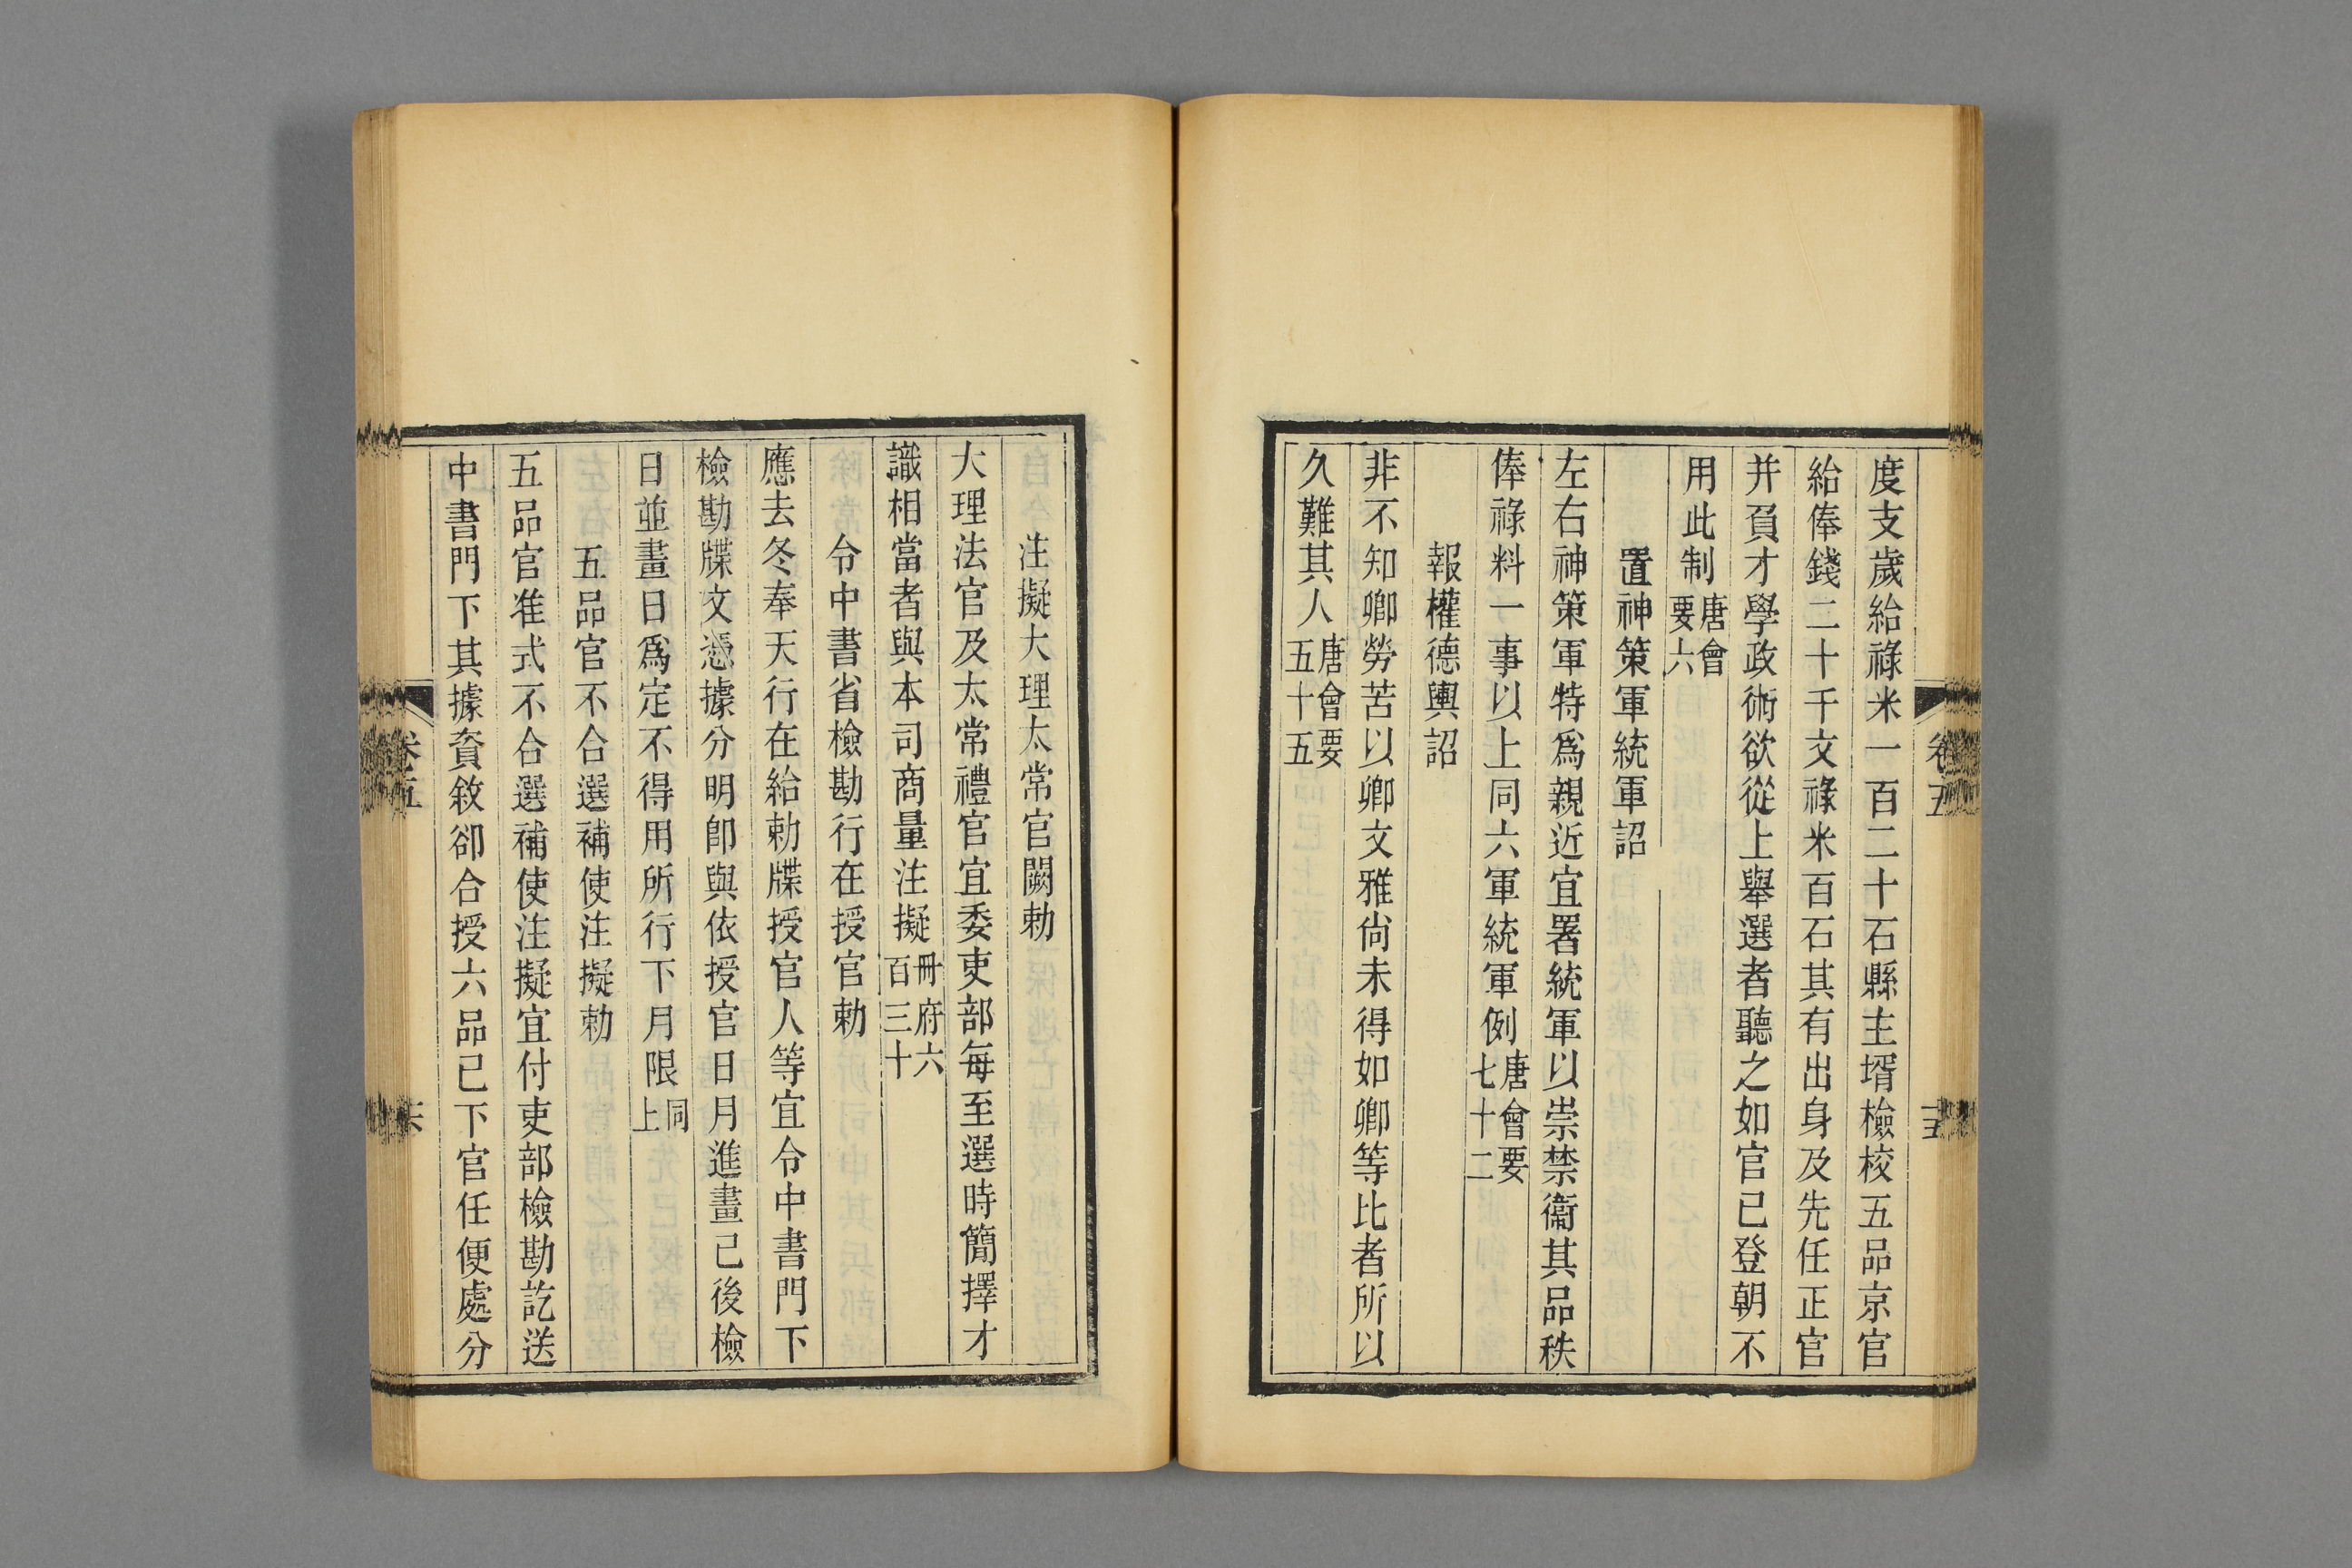 度支歲給祿米一百二十石縣主壻檢校五品京官
給俸錢二十千文祿米百石其有出身及先任正官
并負才學政術欲從上舉選者聽之如官已登朝不
用此制唐會要六
置神策軍統軍詔
左右神策軍特爲親近宜署統軍以崇禁衞其品秩
俸祿料一事以上同六軍統軍例唐會要七十二
報權德輿詔
非不知卿勞苦以卿文雅尙未得如卿等比者所以
久難其人唐會要五十五
注擬大理太常官闕勅
大理法官及太常禮官宜委吏部每至選時簡擇才
識相當者與本司商量注擬冊府六百三十
令中書省檢勘行在授官勅
應去冬奉天行在給勅牒授官人等宜令中書門下
檢勘牒文憑據分明卽與依授官日月進畫已後檢
日並畫日爲定不得用所行下月限同上
五品官不合選補使注擬勅
五品官准式不合選補使注擬宜付吏部檢勘訖送
中書門下其據資敘卻合授六品已下官任便處分
卷五